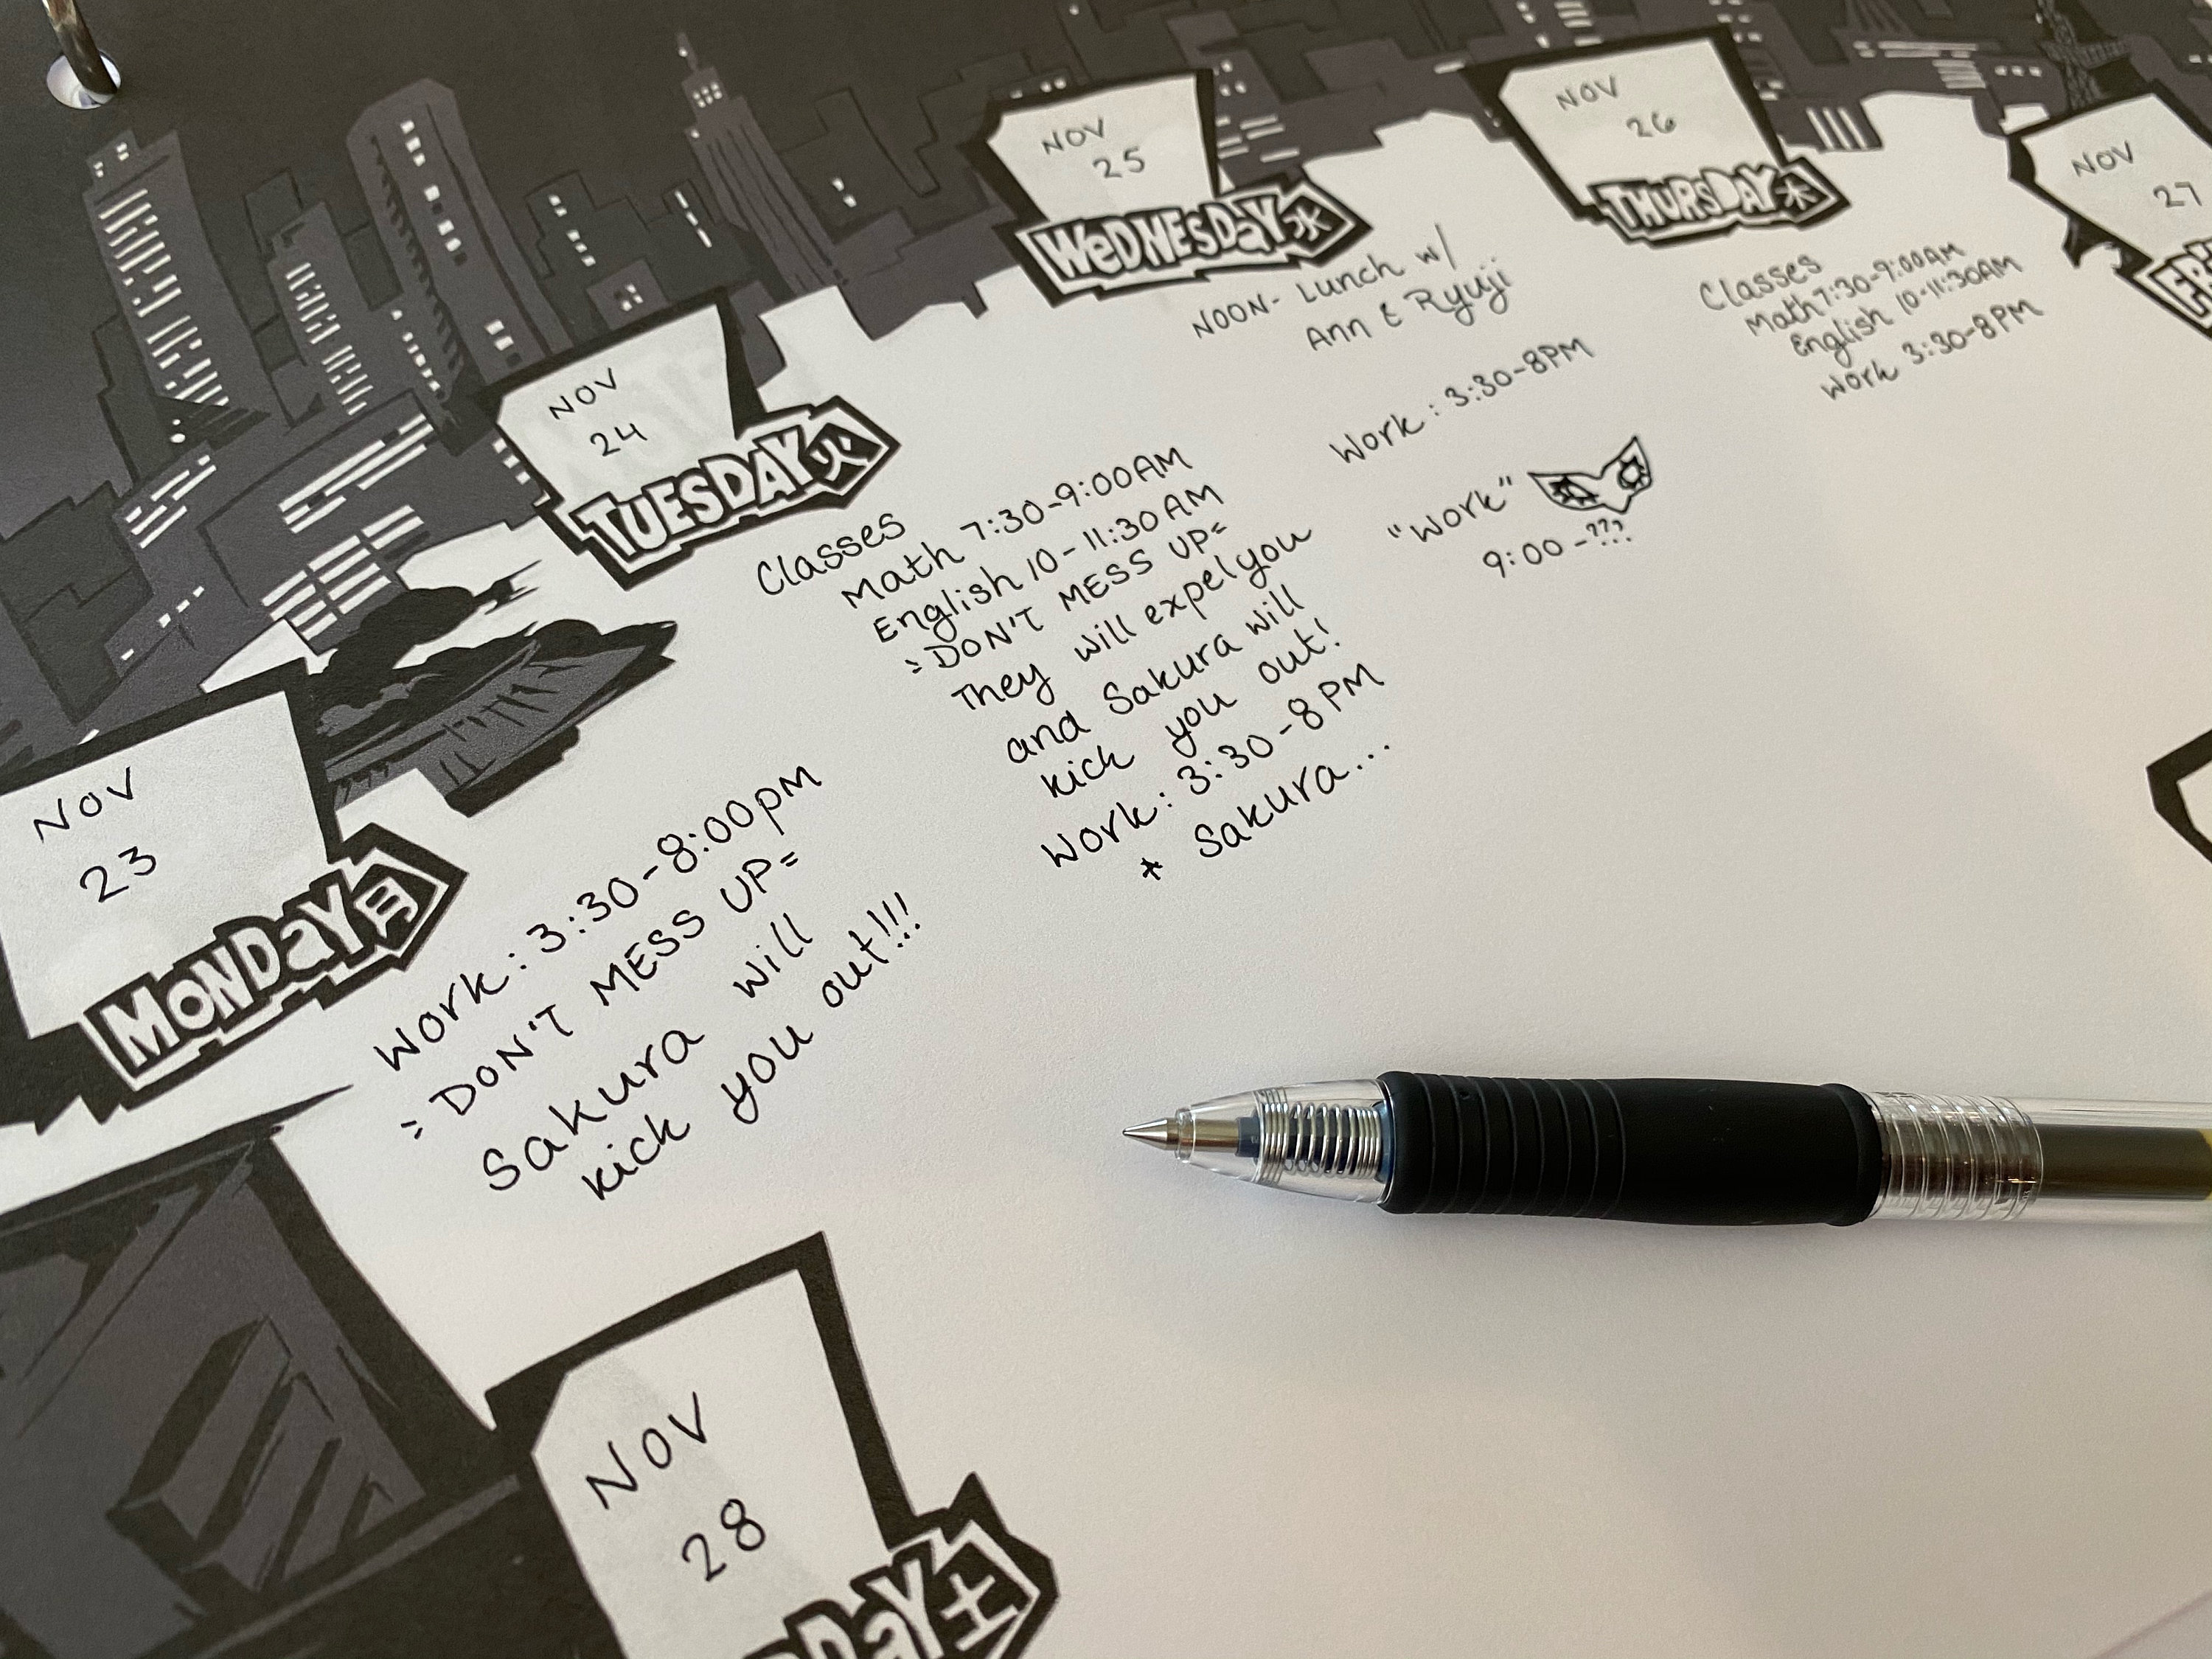 NOV
23
MONDAY月
Work: 3:30-8:00pm
=DON'T MESS UP=
Sakura will
kick you out!!!
NOV
24
TUESDAY火
Classes
Math 7:30-9:00AM
English 10-11:30AM
=DON'T MESS UP=
They will expel you
and Sakura will
kick you out!
Work: 3:30-8PM
* Sakura...
NOV
25
WEDNESDAY水
NOON- Lunch w/
Ann & Ryuji
Work: 3:30-8PM
"Work"
9:00-???
NOV
26
THURSDAY木
Classes
Math 7:30-9:00AM
English 10-11:30AM
Work 3:30-8PM
NOV
27
NOV
28